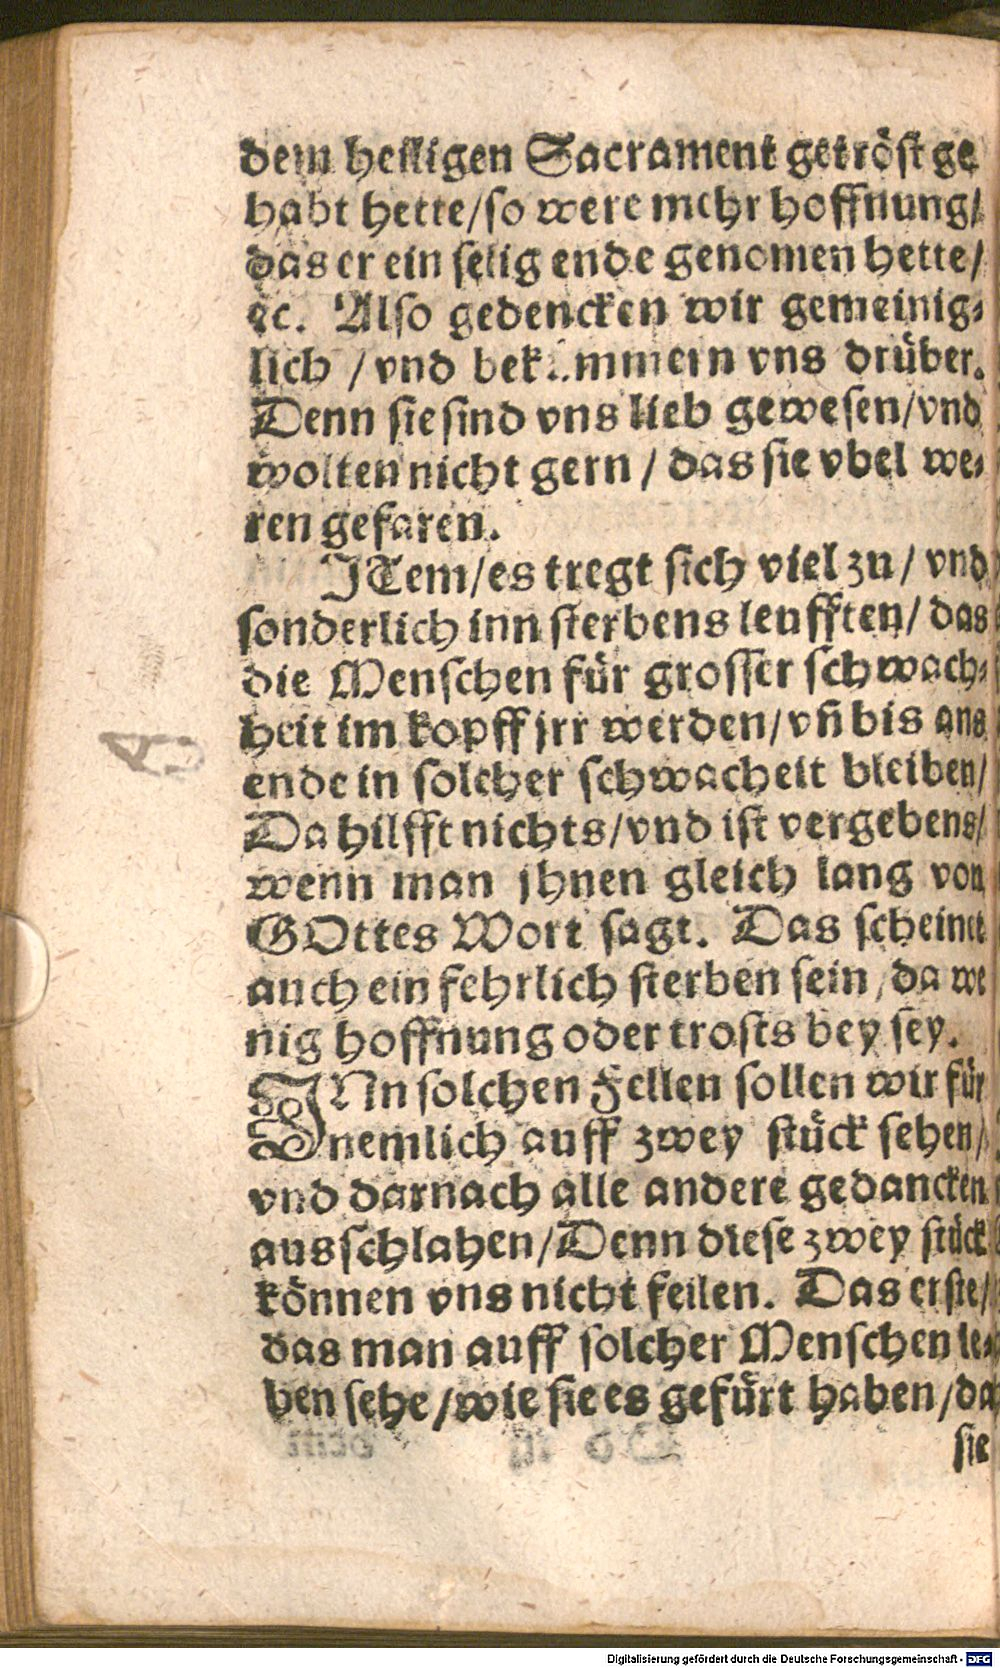 dem heiligen Sacrament getröst ge
habt hette/so were mehr hoffnung/
das er ein selig ende genomen hette/
ꝛc. Also gedencken wir gemeinig⸗
lich /vnd bekümmern vns drüber.
Denn sie sind vns lieb gewesen/vnd
wolten nicht gern / das sie vbel we⸗
ren gefaren.
JTem/es tregt sich viel zu/ vnd
sonderlich inn sterbens leufften/ das
die Menschen für grosser schwach⸗
heit im kopff jrr werden/vñ bis ans
ende in solcher schwacheit bleiben/
Da hilfft nichts/vnd ist vergebens/
wenn man jhnen gleich lang von
GOttes Wort sagt. Das scheinet
auch ein fehrlich sterben sein/da we
nig hoffnung oder trosts bey sey.
JNn solchen Fellen sollen wir für
nemlich auff zwey stück sehen/
vnd darnach alle andere gedancken
ausschlahen/Denn diese zwey stück
können vns nicht feilen. Das erste/
das man auff solcher Menschen le⸗
ben sehe/wie sie es gefürt haben/da
sie
Digitalisierung gefördert durch die Deutsche Forschungsgemeinschaft - DFG